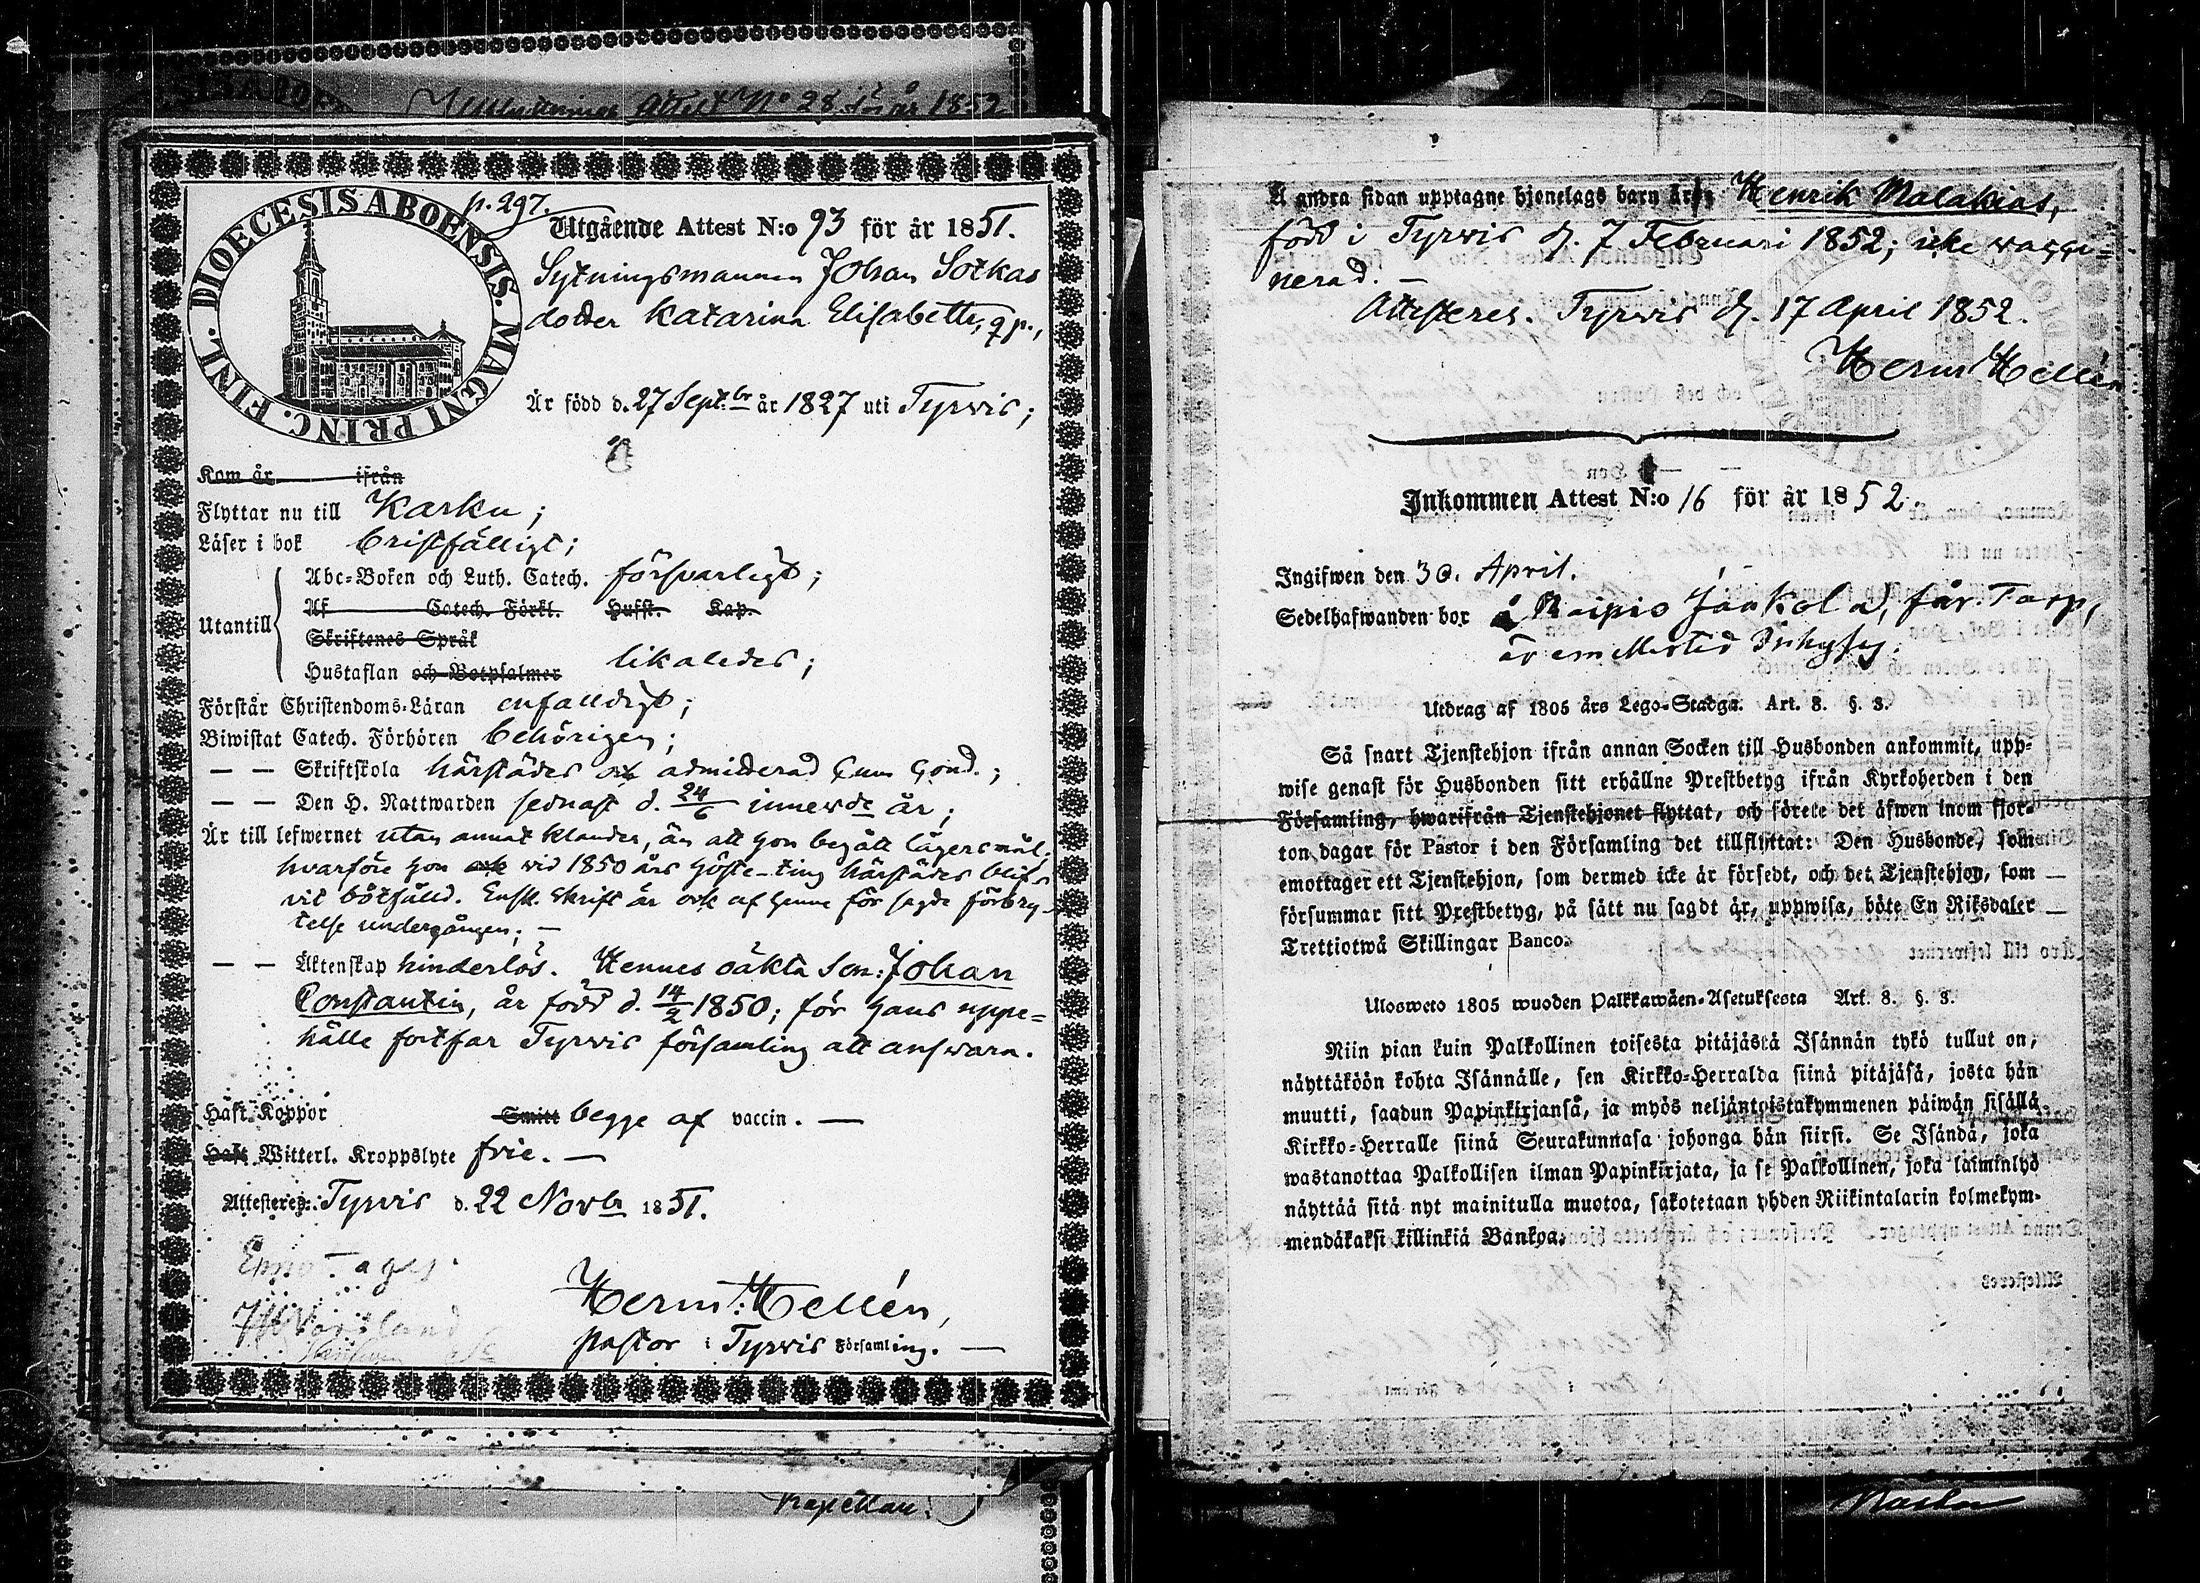 Attest No 28 för år 1852
DIOECESIS ABOENSIS. MAGNI PRINC. FINL.
p. 297.
Utgående Attest N:o 93 för år 1851.
Sytningsmannen Johan Sotkas
dotter Katarina Elisabeth, q.p.,
Är född d. 27 Sept:br år 1827 uti Tyrvis;
Kom år ifrån
Flyttar nu till Karku;
Läser i bok bristfälligt;
Utantill
Abc-Boken och Luth. Catech. försvarligt;
Af Catech. Förkl. Hufst. Kap.
Skriftenes Språk
Hustaflan och Botpsalmer likaledes;
Förstår Christendoms-Läran enfalldigt;
Biwistat Catech. Förhören behörigen;
— — Skriftskola härstädes och admitterad
— — Den H. Nattwarden sednast d. 24/6 innewde år;
Är till lefwernet utan annat klander, än att hon begått lägersmål,
hvarföre hon ock vid 1850 års höste-ting härstädes blif-
vit bötfälld. Ensk. skrift är ock af henne för sagde förbry-
telse undergången; —
— — Äktenskap hinderlös. Hennes oäkta son: Johan
Constantin, är född d. 14/2 1850; för hans uppe=
hälle fortfar Tyrvis församling att answara.
Haft Koppor Smitt begge af vaccin. —
Haft Witterl. Kroppslyte frie. —
Attesterer: Tyrvis d. 22 Novbr 1851.
Herm: Hellén,
pastor i Tyrvis Församling. —
Kapellan.
Å andra sidan upptagne hjonelags barn är: Henrik Malakias,
född i Tyrvis d. 7 Februari 1852; icke vacci=
nerad. —
Attesteres. Tyrvis d. 17 April 1852.
Herm Hellén
Inkommen Attest N:o 16 för år 1852.
Ingifwen den 30. April.
Sedelhafwanden bor å Raipio Jaakola, får. Torp,
Utdrag af 1805 års Lego-Stadga. Art. 8. §. 3.
Så snart Tjenstehjon ifrån annan Socken till Husbonden ankommit, upp-
wise genast för Husbonden sitt erhållne Prestbetyg ifrån Kyrkoherden i den
Församling, hwarifrån Tjenstehjonet flyttat, och förete det äfwen inom fjor-
ton dagar för Pastor i den Församling det tillflyttat: Den Husbonde, som
emottager ett Tjenstehjon, som dermed icke är försedt, och det Tjenstehjon, som
försummar sitt Prestbetyg, på sätt nu sagdt är, uppwisa, böte En Riksdaler
Trettiotwå Skillingar Banco.
Ulosweto 1805 wuoden Palkkawäen-Asetuksesta Art. 8. §. 3.
Niin pian kuin Palkollinen toisesta pitäjästä Isännän tykö tullut on,
näyttäköön kohta Isännälle, sen Kirkko-Herralda siinä pitäjäsä, josta hän
muutti, saadun Papinkirjansa, ja myös neljäntoistakymmenen päiwän sisällä
Kirkko-Herralle siinä Seurakunnasa johonga hän siirsi. Se Isändä, joka
wastanottaa Palkollisen ilman Papinkirjata, ja se Palkollinen, joka laiminlyö
näyttää sitä nyt mainitulla muotoa, sakotetaan yhden Riikintalarin kolmekym-
mendäkaksi killinkiä Bankoa.